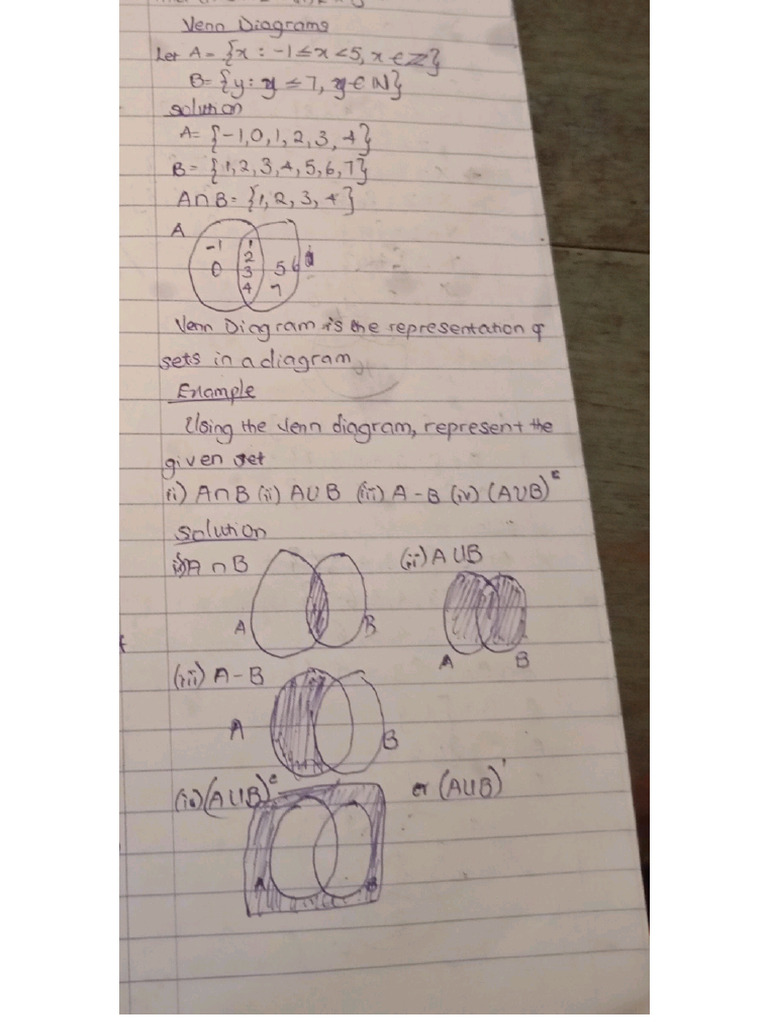 Venn Diagrams
Let A = {x : -1 ≤ x < 5, x ∈ Z}
B = {y : y ≤ 7, y ∈ N}
solution
A = {-1, 0, 1, 2, 3, 4}
B = {1, 2, 3, 4, 5, 6, 7}
A∩B = {1, 2, 3, 4}
A
-1 1
2
0 3 5 6
4 7
Venn Diagram is the representation of
sets in a diagram
Example
Using the Venn diagram, represent the
given set
(i) A∩B (ii) A∪B (iii) A-B (iv) (A∪B)ᶜ
Solution
(i) A∩B (ii) A∪B
A B A B
(iii) A-B
A B
(iv) (A∪B)ᶜ or (A∪B)'
A B